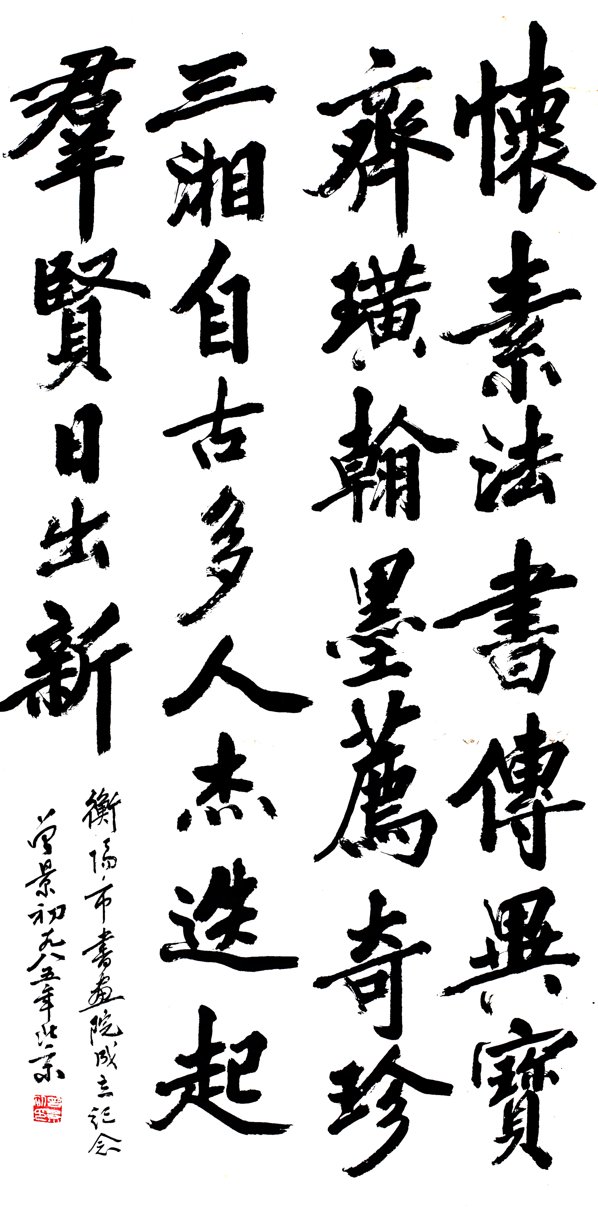 懷素法書傳異寶
齊璜翰墨薦奇珍
三湘自古多人杰迭起
羣賢日出新
衡陽市書畫院成立記念
曾景初一九八五年北京